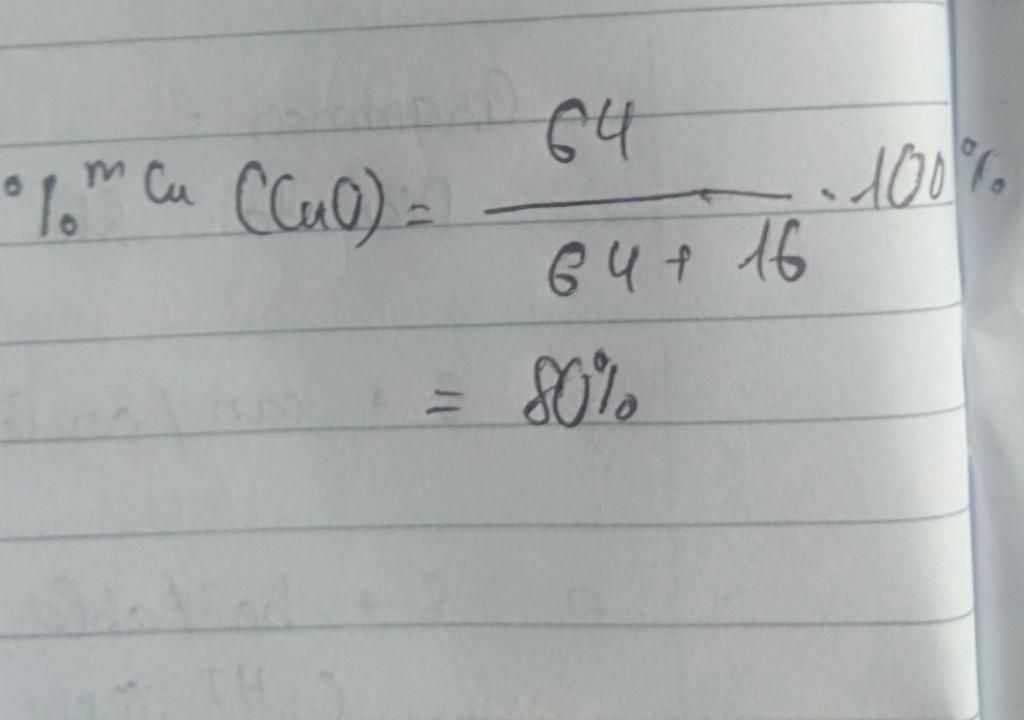 %m Cu (CuO) = 64 / 64 + 16 . 100%
= 80%